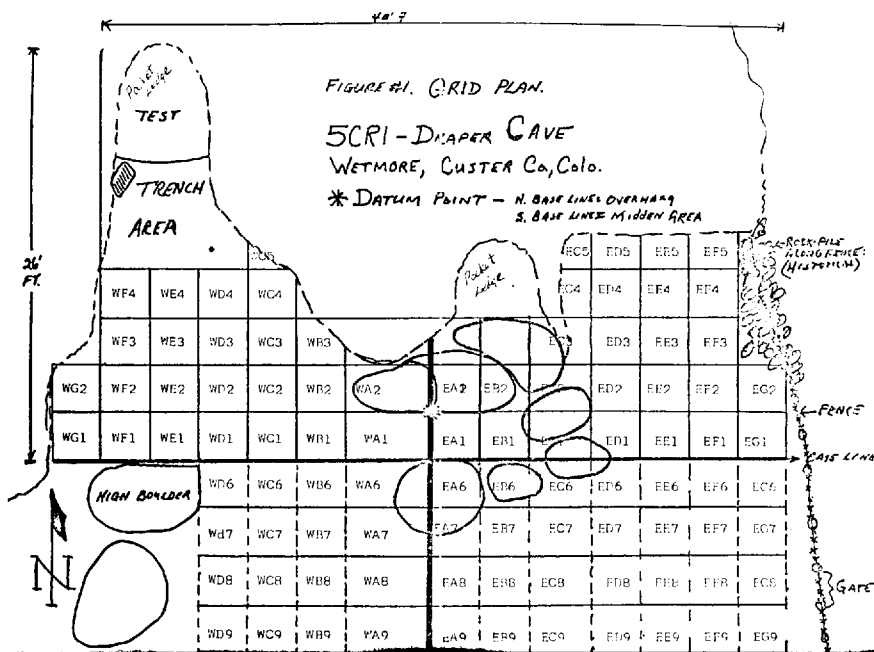 40' 7
Pocket Ledge
TEST
TRENCH
AREA
26'
FT.
FIGURE #1. GRID PLAN.
5CR1 - DRAPER CAVE
WETMORE, CUSTER Co, Colo.
* DATUM POINT - N. BASE LINE = OVERHANG
S. BASE LINE = MIDDEN AREA
Pocket Ledge
ROCK-PILE
ALONG FENCE
(HISTORICAL)
EC5 ED5 EE5 EF5
WF4 WE4 WD4 WC4 EC4 ED4 EE4 EF4
WF3 WE3 WD3 WC3 WB3 EC3 ED3 EE3 EF3
WG2 WF2 WE2 WD2 WC2 WB2 WA2 EA2 EB2 ED2 EE2 EF2 EG2
FENCE
WG1 WF1 WE1 WD1 WC1 WB1 WA1 EA1 EB1 ED1 EE1 EF1 EG1
BASE LINE
HIGH BOULDER
WD6 WC6 WB6 WA6 EA6 EB6 EC6 ED6 EE6 EF6 EG6
Wd7 WC7 WB7 WA7 EA7 EB7 EC7 ED7 EE7 EF7 EG7
N
WD8 WC8 WB8 WA8 EA8 EB8 EC8 ED8 EE8 EF8 EG8
GATE
WD9 WC9 WB9 WA9 EA9 EB9 EC9 ED9 EE9 EF9 EG9